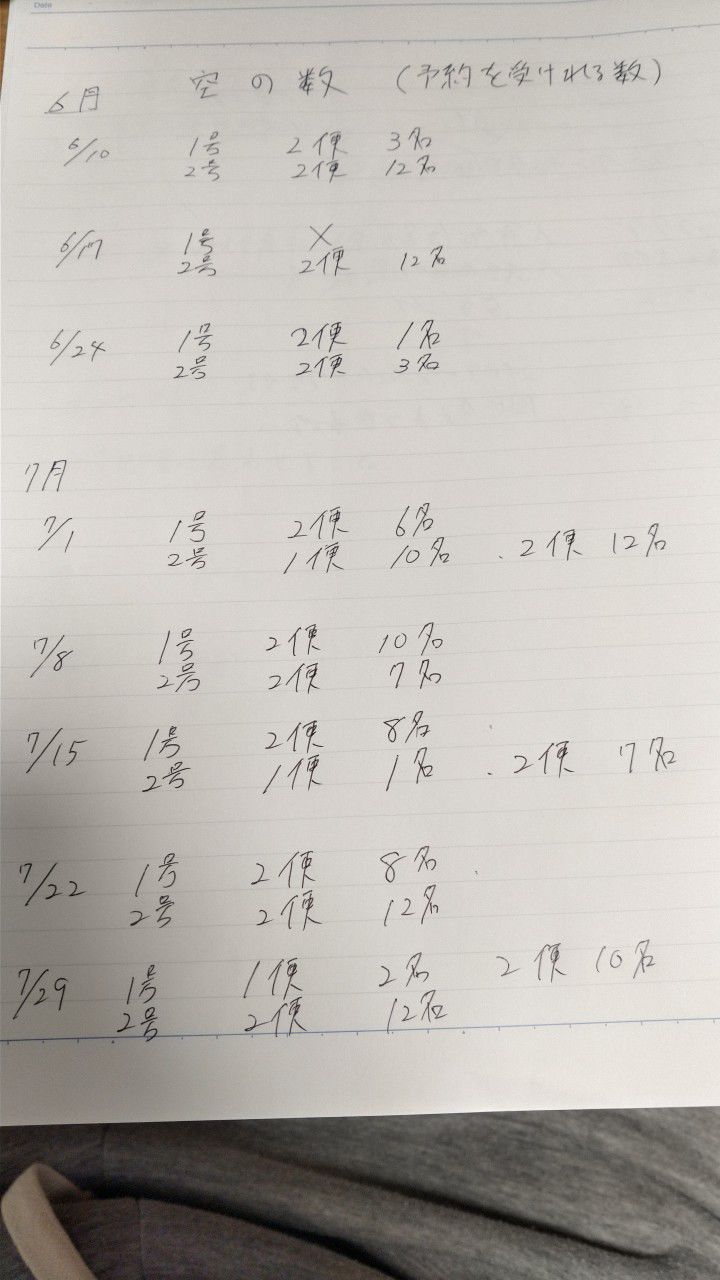 Date
6月 空の数 (予約を受けれる数)
6/10 1号 2便 3名
2号 2便 12名
6/17 1号 ×
2号 2便 12名
6/24 1号 2便 1名
2号 2便 3名
7月
7/1 1号 2便 6名
2号 1便 10名 . 2便 12名
7/8 1号 2便 10名
2号 2便 7名
7/15 1号 2便 8名
2号 1便 1名 . 2便 7名
7/22 1号 2便 8名 .
2号 2便 12名
7/29 1号 1便 2名 2便 10名
2号 2便 12名